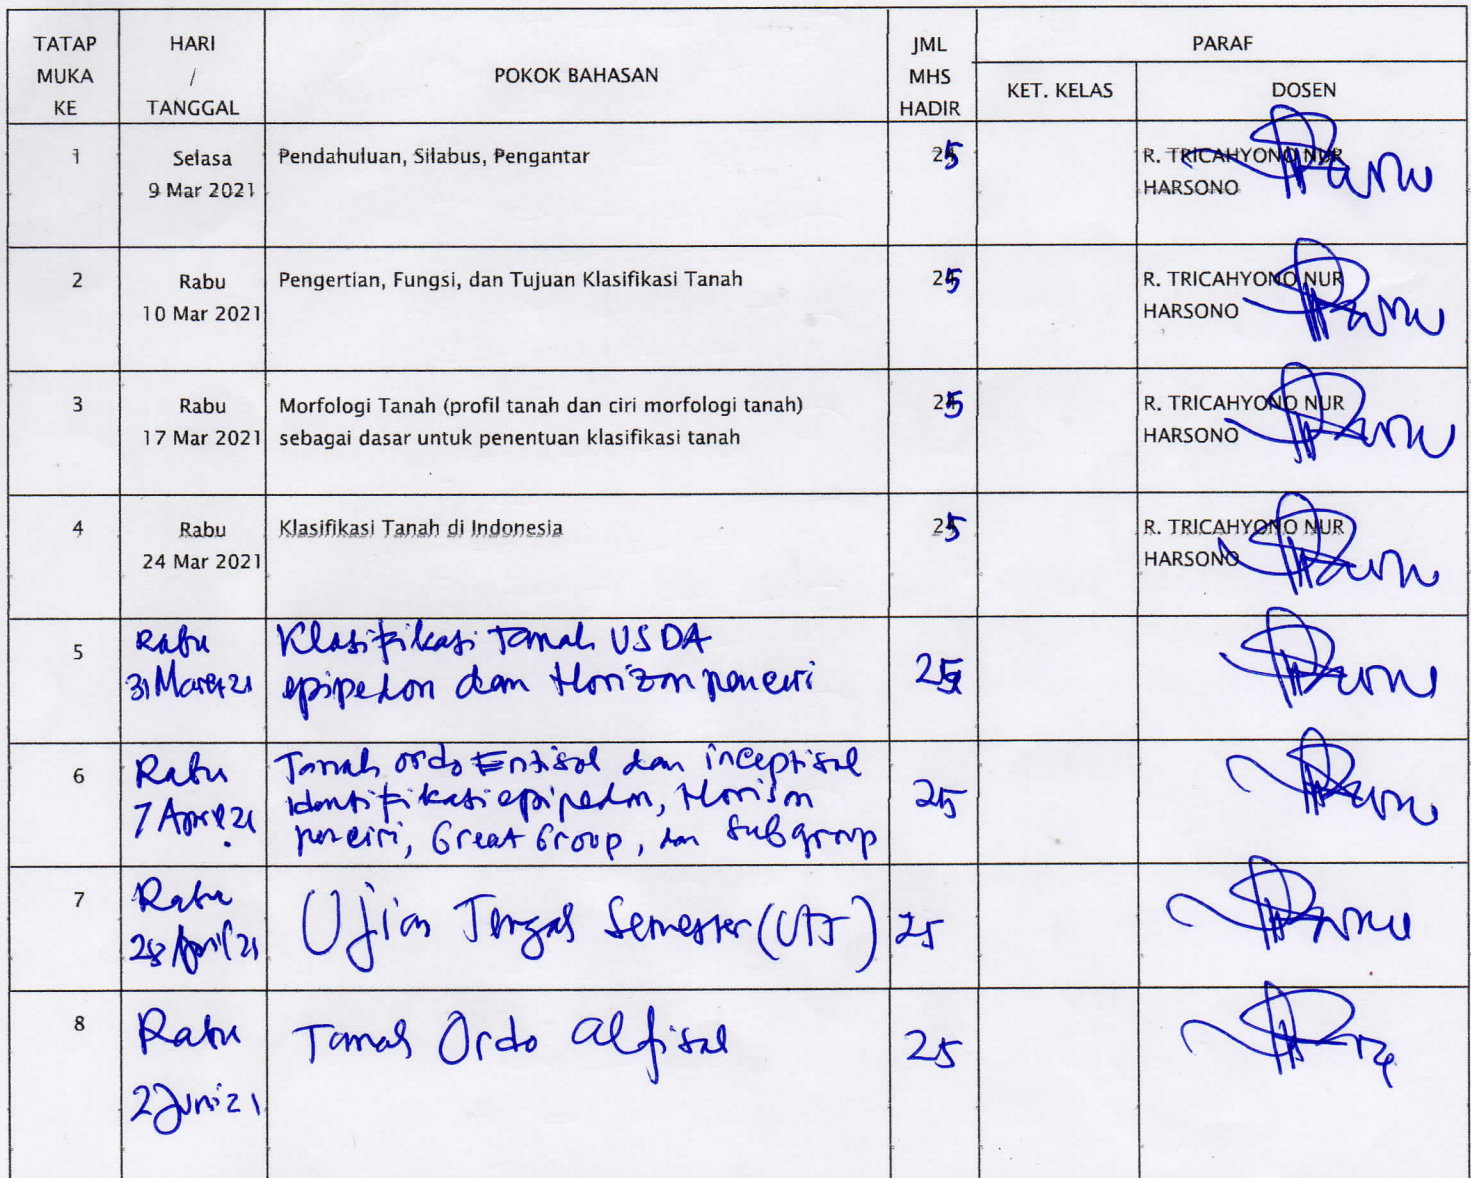 TATAP MUKA KE
HARI / TANGGAL
POKOK BAHASAN
JML MHS HADIR
PARAF
KET. KELAS
DOSEN
1
Selasa
9 Mar 2021
Pendahuluan, Silabus, Pengantar
25
R. TRICAHYONO NUR
HARSONO
2
Rabu
10 Mar 2021
Pengertian, Fungsi, dan Tujuan Klasifikasi Tanah
25
R. TRICAHYONO NUR
HARSONO
3
Rabu
17 Mar 2021
Morfologi Tanah (profil tanah dan ciri morfologi tanah)
sebagai dasar untuk penentuan klasifikasi tanah
25
R. TRICAHYONO NUR
HARSONO
4
Rabu
24 Mar 2021
Klasifikasi Tanah di Indonesia
25
R. TRICAHYONO NUR
HARSONO
5
Rabu
31 Maret 21
Klasifikasi Tanah USDA
epipedon dan Horizon penciri
25
6
Rabu
7 April 21
Tanah ordo Entisol dan inceptisol
identifikasi epipedon, Horison
penciri, Great Group, dan Subgroup
25
7
Rabu
28 April 21
Ujian Tengah Semester (UTS)
25
8
Rabu
2 Juni 21
Tanah Ordo Alfisol
25